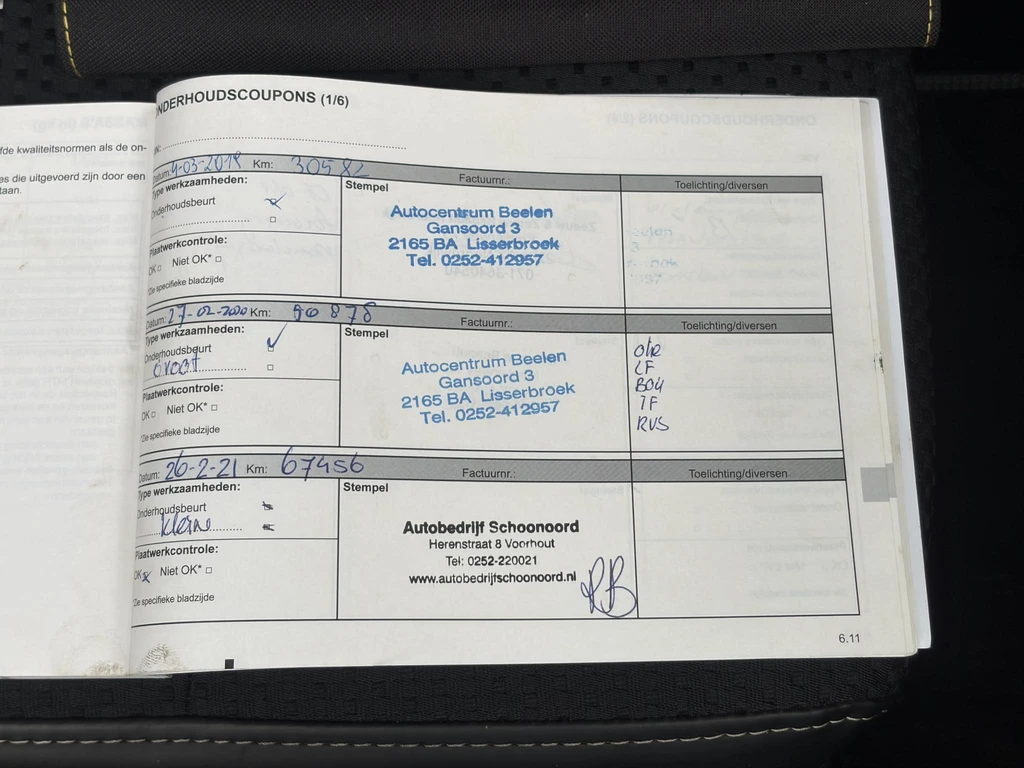 fde kwaliteitsnormen als de on-
es die uitgevoerd zijn door een
taan.
NDERHOUDSCOUPONS (1/6)
Datum: 4-03-2019 Km: 30582 Factuurnr.: Toelichting/diversen
Type werkzaamheden:
Stempel
Onderhoudsbeurt
Autocentrum Beelen
Gansoord 3
2165 BA Lisserbroek
Tel. 0252-412957
Plaatwerkcontrole:
OK □ Niet OK* □
*Zie specifieke bladzijde
Datum: 27-02-2020 Km: 50878 Factuurnr.: Toelichting/diversen
Type werkzaamheden:
Stempel
Onderhoudsbeurt
Groot
Autocentrum Beelen
Gansoord 3
2165 BA Lisserbroek
Tel. 0252-412957
LF
BOU
IF
RVS
Plaatwerkcontrole:
OK □ Niet OK* □
*Zie specifieke bladzijde
Datum: 26-2-21 Km: 67456 Factuurnr.: Toelichting/diversen
Type werkzaamheden:
Stempel
Onderhoudsbeurt
Kleine
Autobedrijf Schoonoord
Herenstraat 8 Voorhout
Tel: 0252-220021
www.autobedrijfschoonoord.nl
Plaatwerkcontrole:
OK Niet OK* □
*Zie specifieke bladzijde
6.11